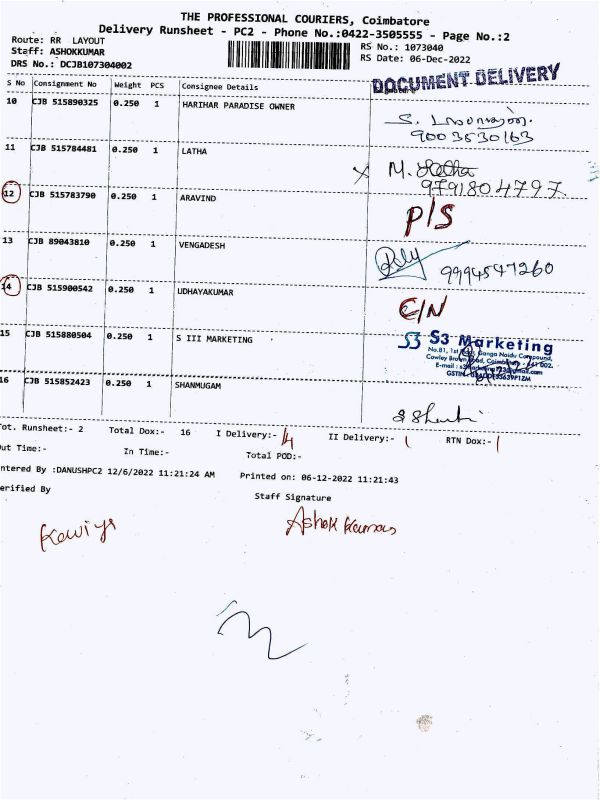 THE PROFESSIONAL COURIERS, Coimbatore
Delivery Runsheet - PC2 - Phone No.:0422-3505555 - Page No.:2
Route: RR LAYOUT
RS No.: 1073040
Staff: ASHOKKUMAR
RS Date: 06-Dec-2022
DRS No.: DCJB107304002
DOCUMENT DELIVERY
S No Consignment No Weight PCS Consignee Details
10 CJB 515890325 0.250 1 HARIHAR PARADISE OWNER
9003530163
11 CJB 515784481 0.250 1 LATHA
X M. Latha
9791804797
12 CJB 515783790 0.250 1 ARAVIND P/S
13 CJB 89043810 0.250 1 VENGADESH
9994547260
14 CJB 515900542 0.250 1 UDHAYAKUMAR
15 CJB 515880504 0.250 1 S III MARKETING
S3 S3 Marketing
No.81, 1st Ganga Naidu Compound,
Cowley Brown Road, Coimbatore 641 002.
E-mail :
16 CJB 515852423 0.250 1 SHANMUGAM
Tot. Runsheet:- 2 Total Dox:- 16 I Delivery:- 14 II Delivery:- 1 RTN Dox:- 1
Out Time:- In Time:- Total POD:-
ntered By :DANUSHPC2 12/6/2022 11:21:24 AM Printed on: 06-12-2022 11:21:43
erified By Staff Signature
Kawiya
Ashok Kumar